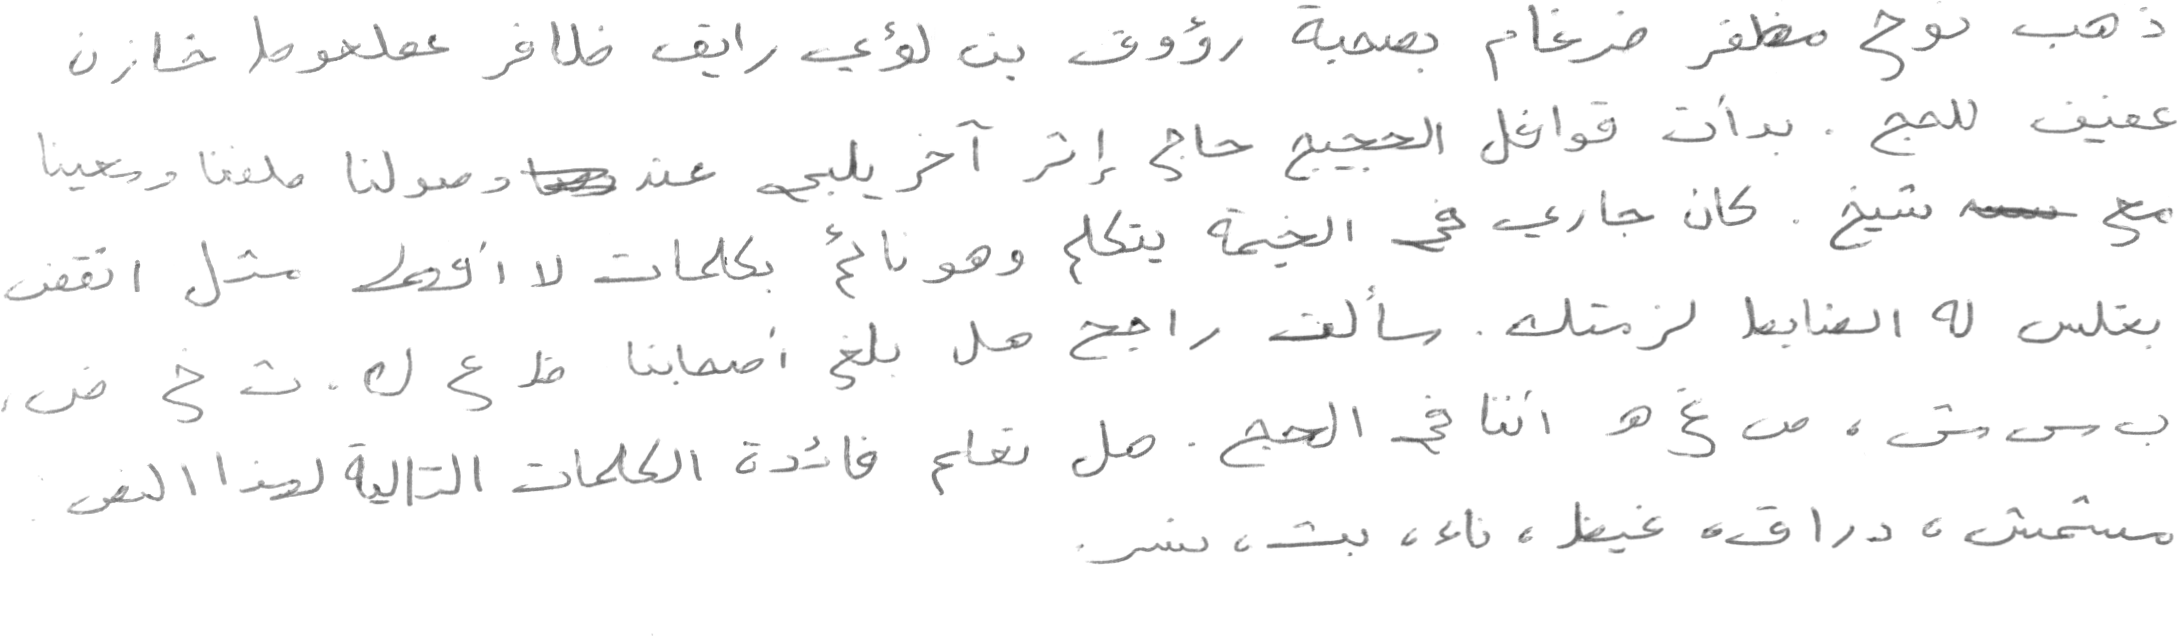 ذهب نوح مظفر ضرغام بصحبة رؤوف بن لؤي رايق ظافر عفلعوط خازن
عفيف للحج . بدأت قوافل الحجيج حاج إثر آخر يلبي عند وصولنا طفنا وسعينا
مع شيخ . كان جاري في الخيمة يتكلم وهو نائم بكلمات لا أفهم مثل اتقف
بغلس له الضابط لزمتك . سألت راجح هل بلغ أصحابنا ظ ع ك . ث خ ض ،
ب س ش ، ص غ ه أننا في الحج . هل تعلم فائدة الكلمات التالية لهذا النص
مشمش ، دراق ، غيظ ، ناء ، بث ، نسر .